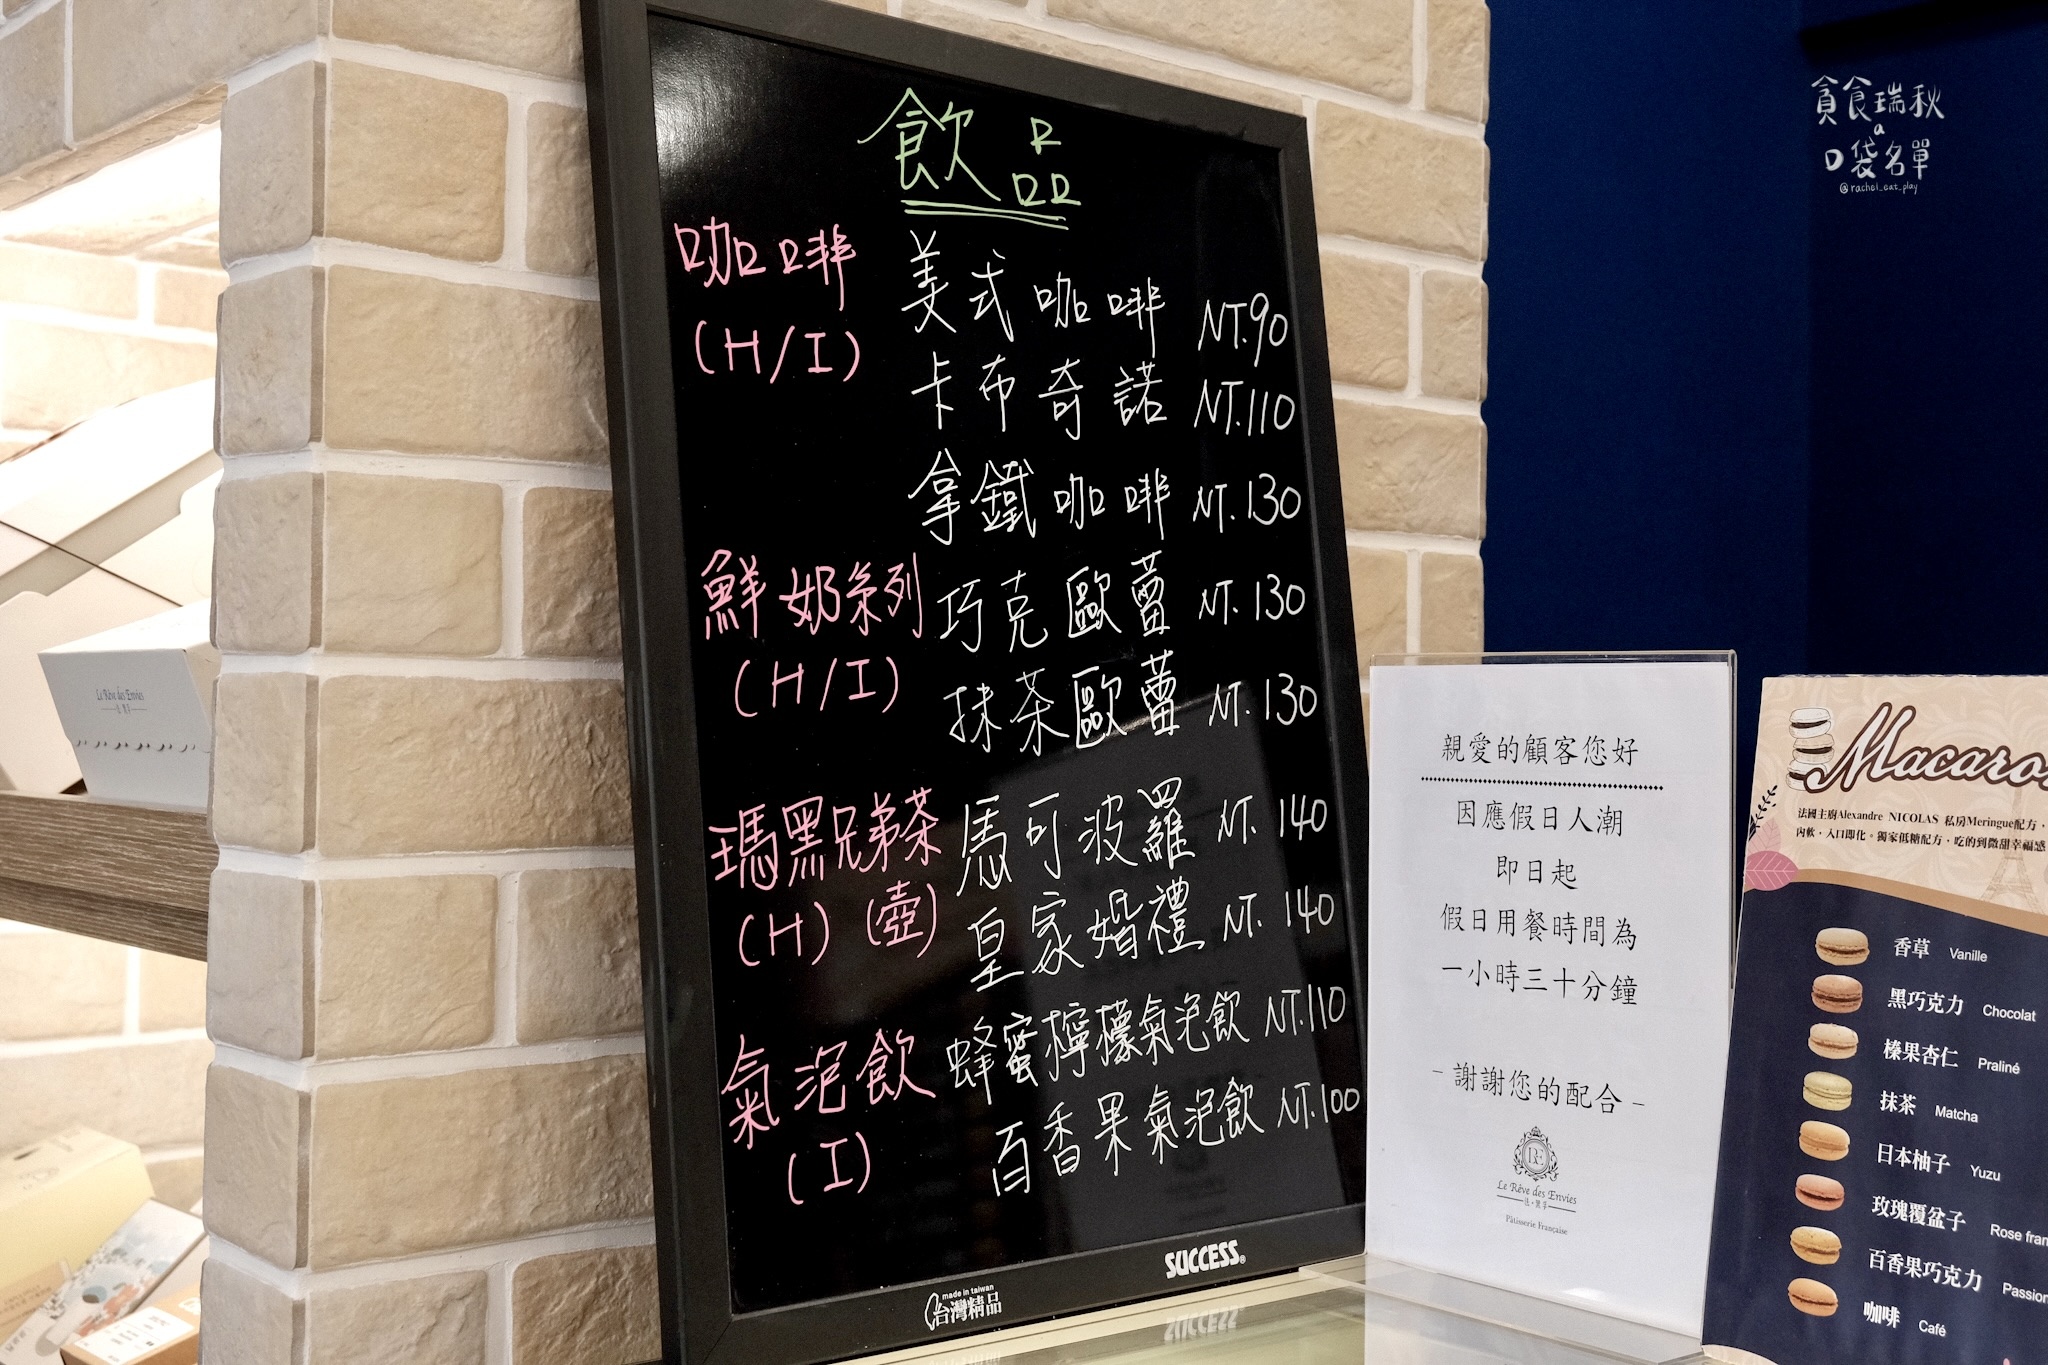 飲品
咖啡 美式咖啡 NT.90
(H/I) 卡布奇諾 NT.110
拿鐵咖啡 NT.130
鮮奶系列 巧克歐蕾 NT.130
(H/I) 抹茶歐蕾 NT.130
瑪黑兄弟茶 馬可波羅 NT.140
(H)(壺) 皇家婚禮 NT.140
氣泡飲 蜂蜜檸檬氣泡飲 NT.110
(I) 百香果氣泡飲 NT.100
SUCCESS
made in taiwan
台灣精品
親愛的顧客您好
因應假日人潮
即日起
假日用餐時間為
一小時三十分鐘
- 謝謝您的配合 -
Le Rêve des Envies
Pâtisserie Française
Macaro
法國主廚Alexandre NICOLAS 私房Meringue配方，
內軟，入口即化。獨家低糖配方，吃的到微甜幸福感
香草 Vanille
黑巧克力 Chocolat
榛果杏仁 Praliné
抹茶 Matcha
日本柚子 Yuzu
玫瑰覆盆子 Rose fram
百香果巧克力 Passion
咖啡 Café
貪食瑞秋
a
口袋名單
@rachel_eat_play
Le Rêve des Envies